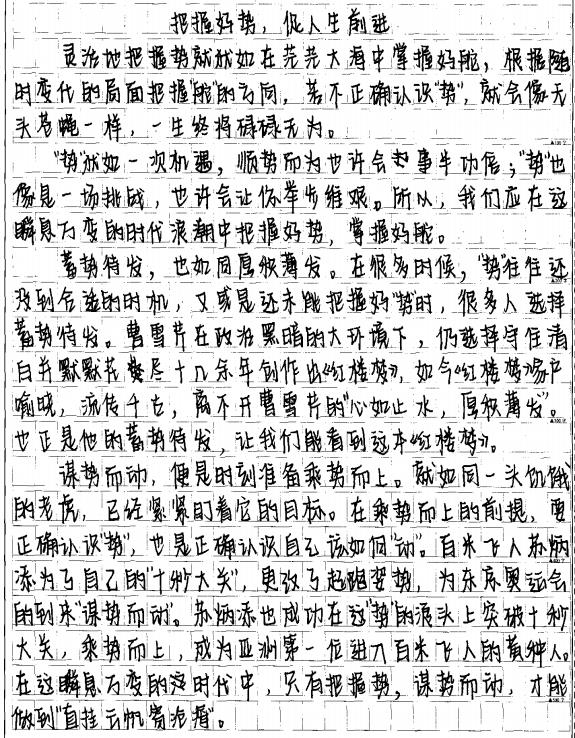 把握好势，促人生前进
灵活地把握势就犹如在茫茫大海中掌握好舵，根据随
时变化的局面把握舵的方向，若不正确认识"势"，就会像无
头苍蝇一样，一生终将碌碌无为。
"势"犹如一次机遇，顺势而为也许会事半功倍；"势"也
像是一场挑战，也许会让你举步维艰。所以，我们应在这
瞬息万变的时代浪潮中把握好势，掌握好舵。
蓄势待发，也如同厚积薄发。在很多时候，"势"往往还
没到合适的时机，又或是还未能把握好"势"时，很多人选择
蓄势待发。曹雪芹在政治黑暗的大环境下，仍选择守住清
白并默默花费尽十几余年创作出《红楼梦》，如今《红楼梦》家户
喻晓，流传千古，离不开曹雪芹的"心如止水，厚积薄发"。
也正是他的蓄势待发，让我们能看到这本《红楼梦》。
谋势而动，便是时刻准备乘势而上。就如同一头饥饿
的老虎，已经紧紧盯着它的目标。在乘势而上的前提，要
正确认识"势"，也是正确认识自己该如何"动"。百米飞人苏炳
添为了自己的"十秒大关"，更改了起跑姿势，为东京奥运会
的到来"谋势而动"。苏炳添也成功在这"势"的浪头上突破十秒
大关，乘势而上，成为亚洲第一位进入百米飞人的黄种人。
在这瞬息万变的这时代中，只有把握势，谋势而动，才能
做到"直挂云帆济沧海"。